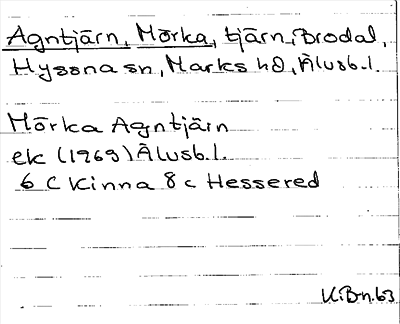 Agntjärn, Mörka, tjärn, Brodal,
Hyssna sn, Marks hd, Älvsb.l.
Mörka Agntjärn
ek (1969) Älvsb.l.
6 C Kinna 8 c Hessered
K.Bn.63